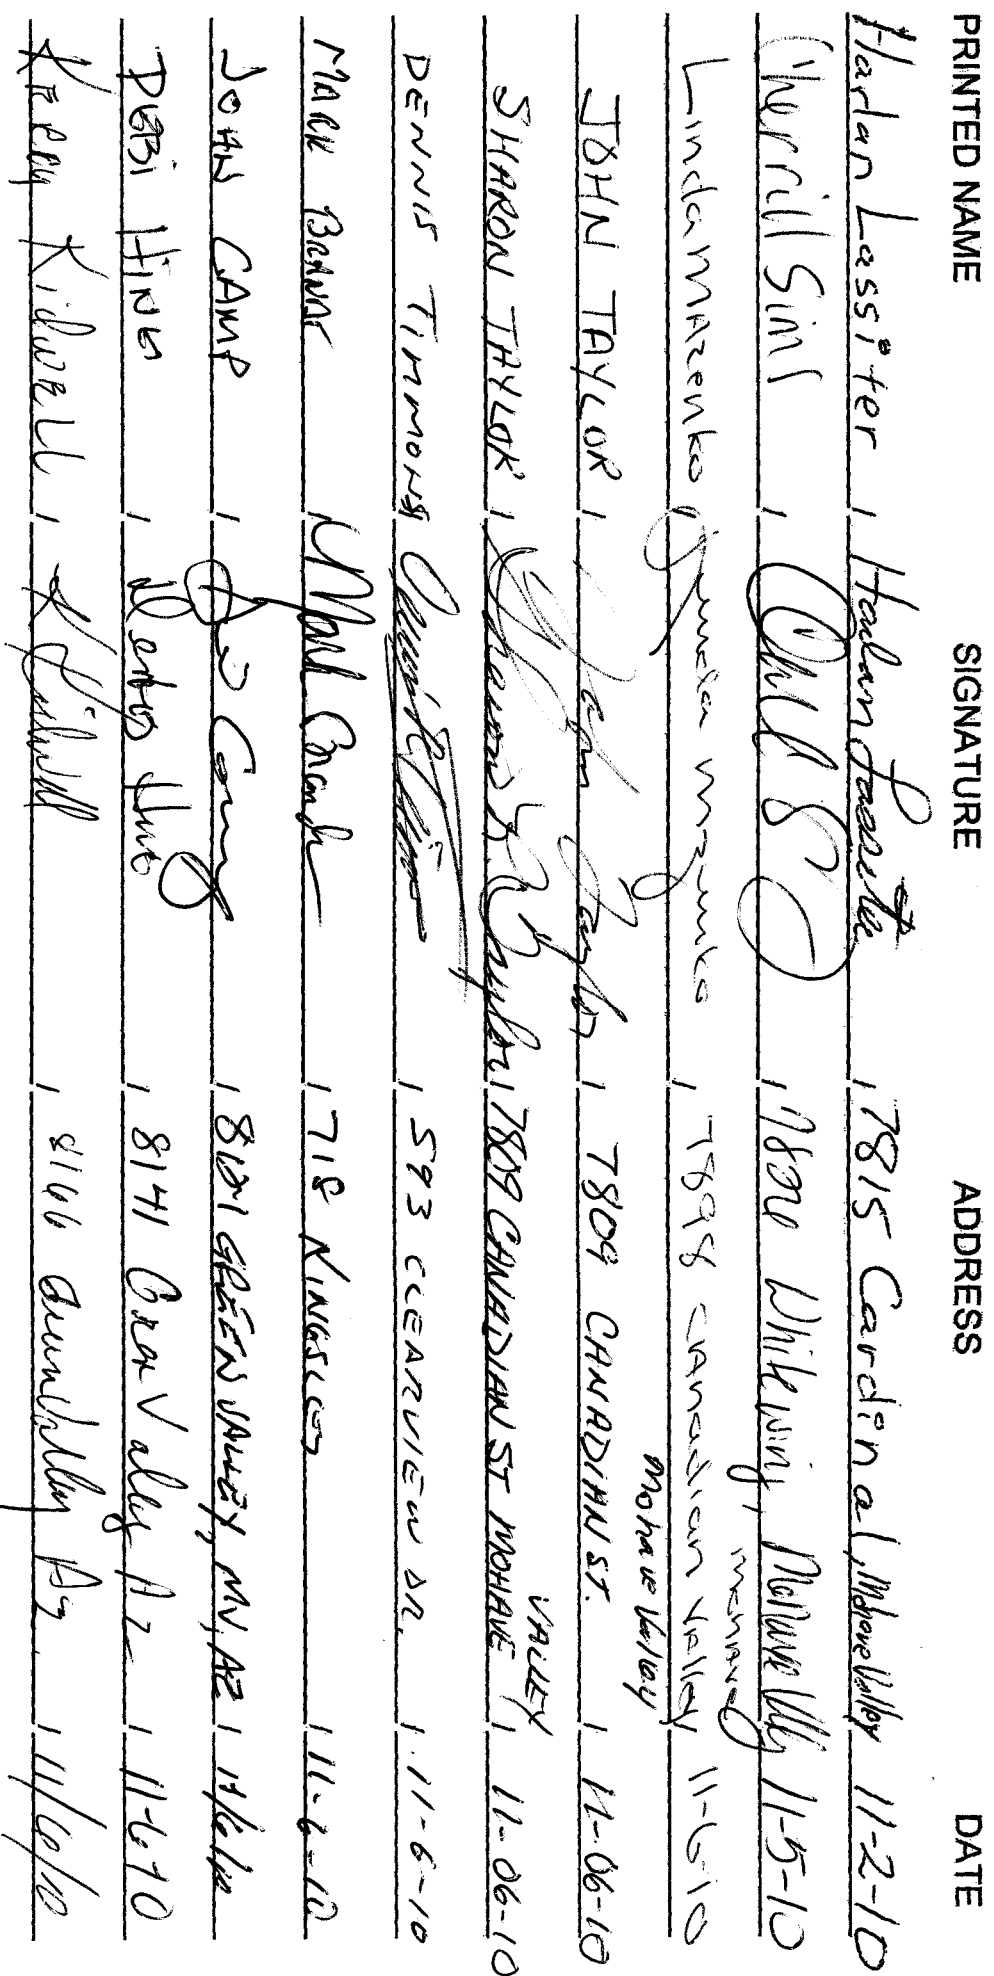 PRINTED NAME SIGNATURE ADDRESS DATE
Harlan Lassiter / Harlan Lassiter / 7815 Cardinal, Mohave Valley 11-2-10
Cherrill Sims / / 7820 Whitewing, Mohave Vlly 11-5-10
Mohave
Linda Mazenko / Linda Mazenko / 7898 Canadian Valley 11-6-10
Mohave Valley
JOHN TAYLOR / John Taylor / 7809 CANADIAN ST. / 11-06-10
VALLEY
SHARON TAYLOR / Sharon Taylor / 7809 CANADIAN ST MOHAVE / 11-06-10
DENNIS TIMMONS / 593 CLEARVIEW DR. / 11-6-10
MARK BRANDT / Mark / 718 KINGSLEY / 11-6-10
JOHN CAMP / Camp / GREEN VALLEY, MV, AZ / 11/6/10
DEBBI HING / / 8141 Green Valley Az / 11-6-10
Kerry Kidwell / K Kidwell / 8166 Green Valley Az. / 11/6/10